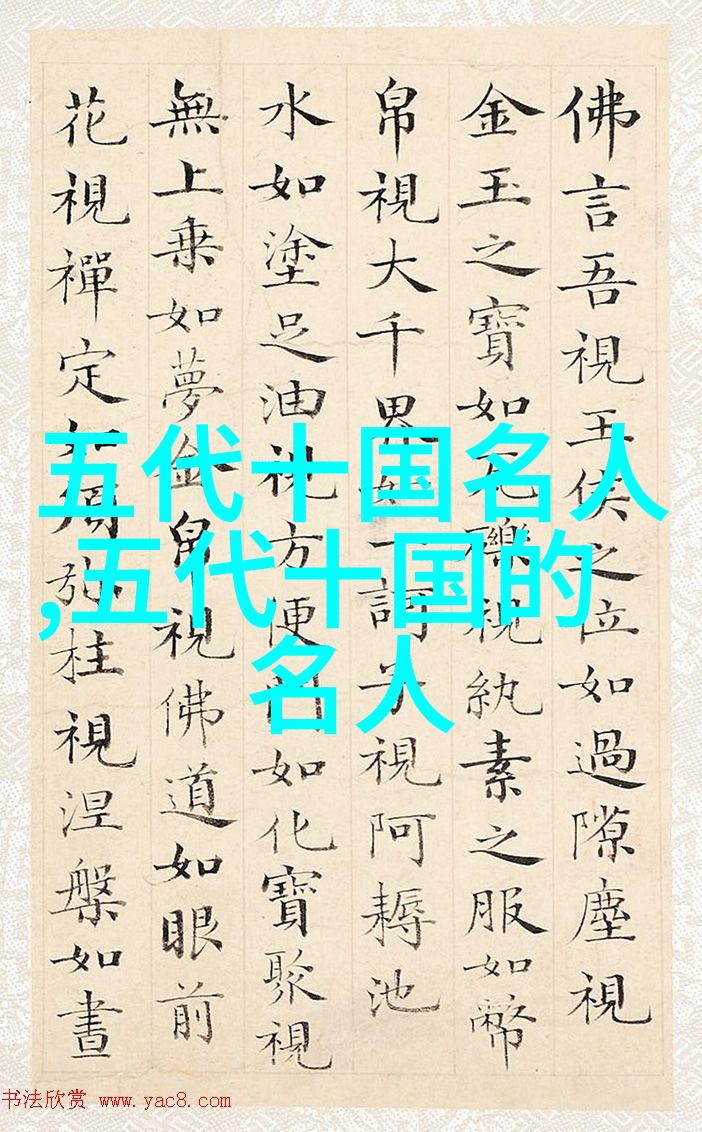 佛言吾視王侯之位如過隙塵視
金玉之寶如瓦礫視紈素之服如幣
帛視大千界如一訶子視阿耨池
水如塗足油視方便門如化寶聚視
無上乗如夢金帛視佛道如眼前
花視禪定如須弥柱視涅槃如晝
五代十国名人
,五代十国的
名人
书法欣赏 www.yac8.com